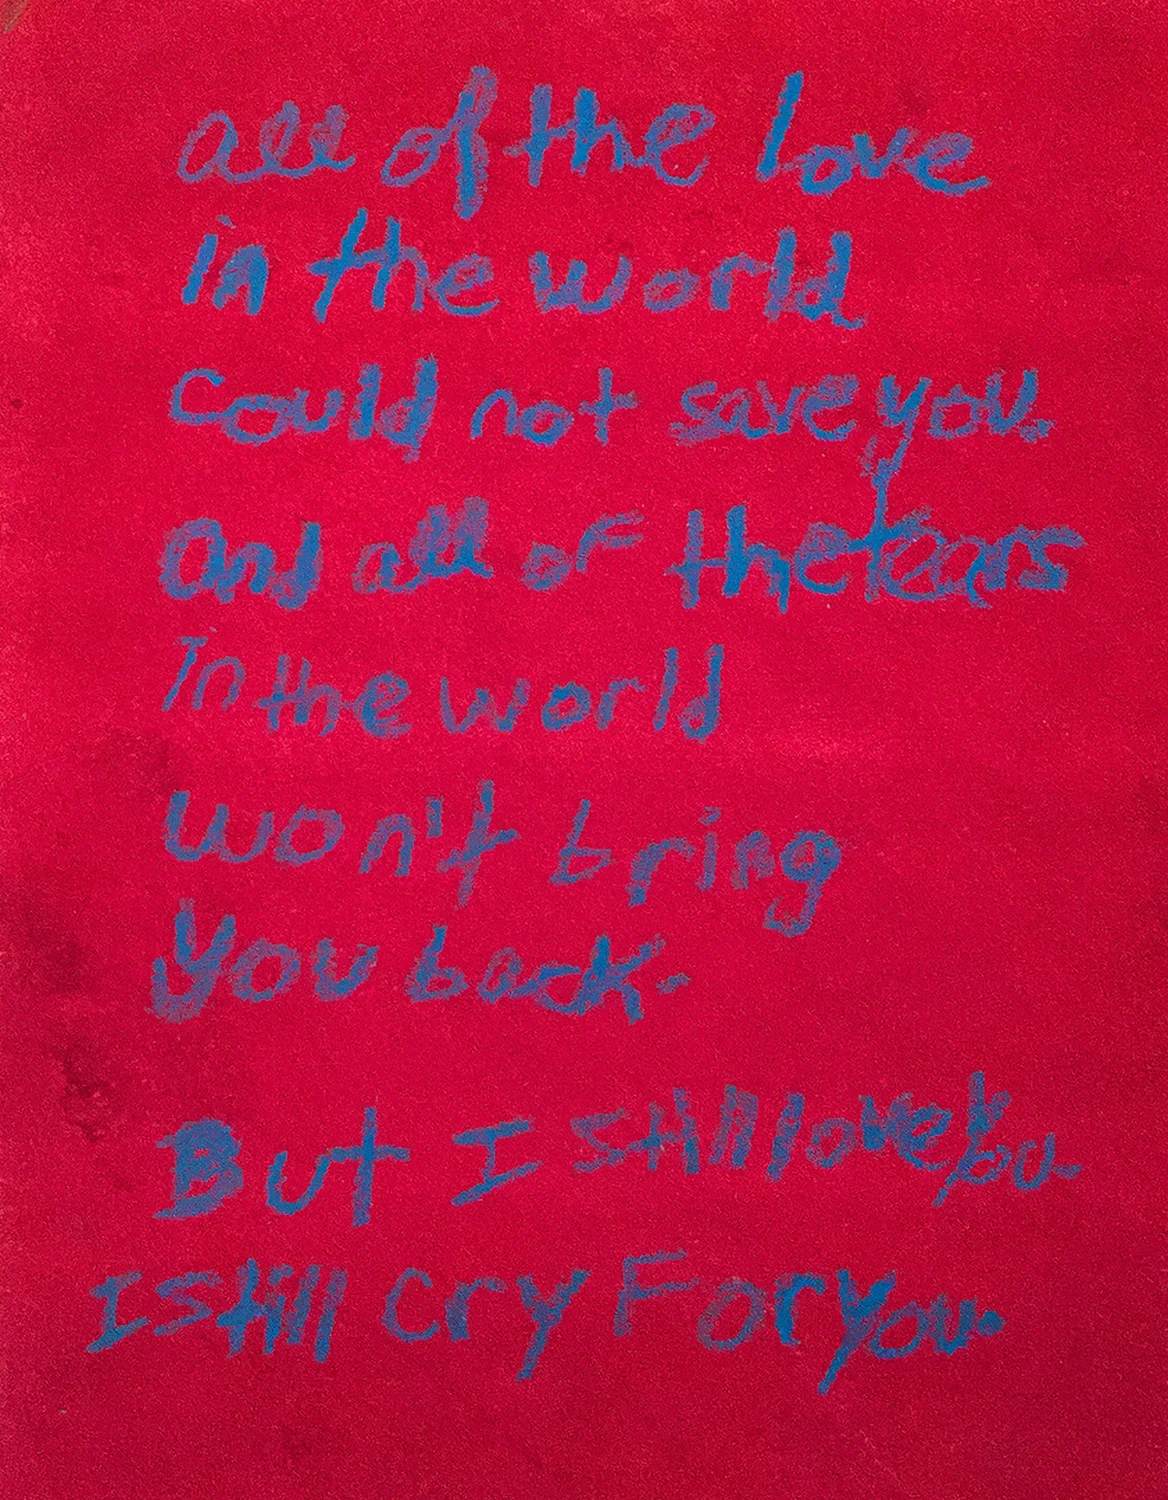 all of the love
in the world
could not save you.
And all of the tears
In the world
won't bring
you back.
But I still love you
I still cry For you.